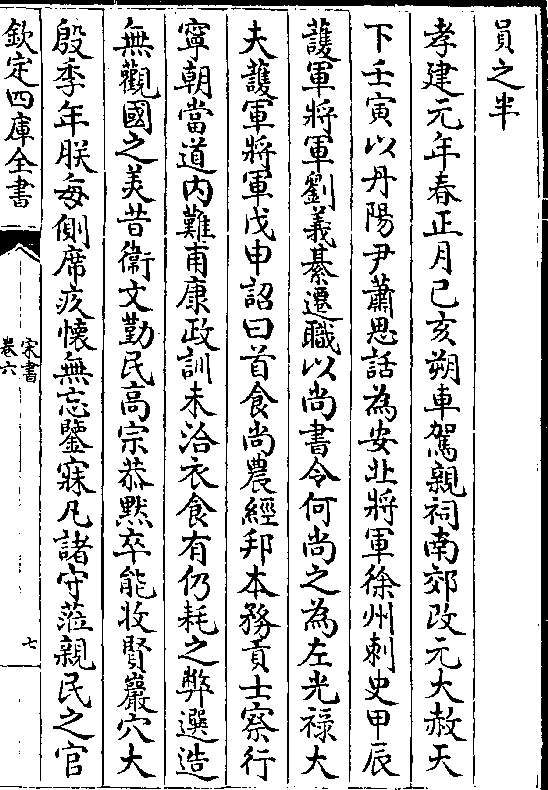 員之半
孝建元年春正月己亥朔車駕親祠南郊改元大赦天
下壬寅以丹陽尹蕭思話為安北將軍徐州刺史甲辰
護軍將軍劉義綦遷職以尚書令何尚之為左光祿大
夫護軍將軍戊申詔曰首食尚農經邦本務貢士察行
寧朝當道内難甫康政訓未洽衣食有仍耗之弊選造
無觀國之美昔衞文勤民高宗恭默卒能收賢巖穴大
殷季年朕每側席疚懷無忘鑒寐凡諸守蒞親民之官
欽定四庫全書
宋書
卷六
七